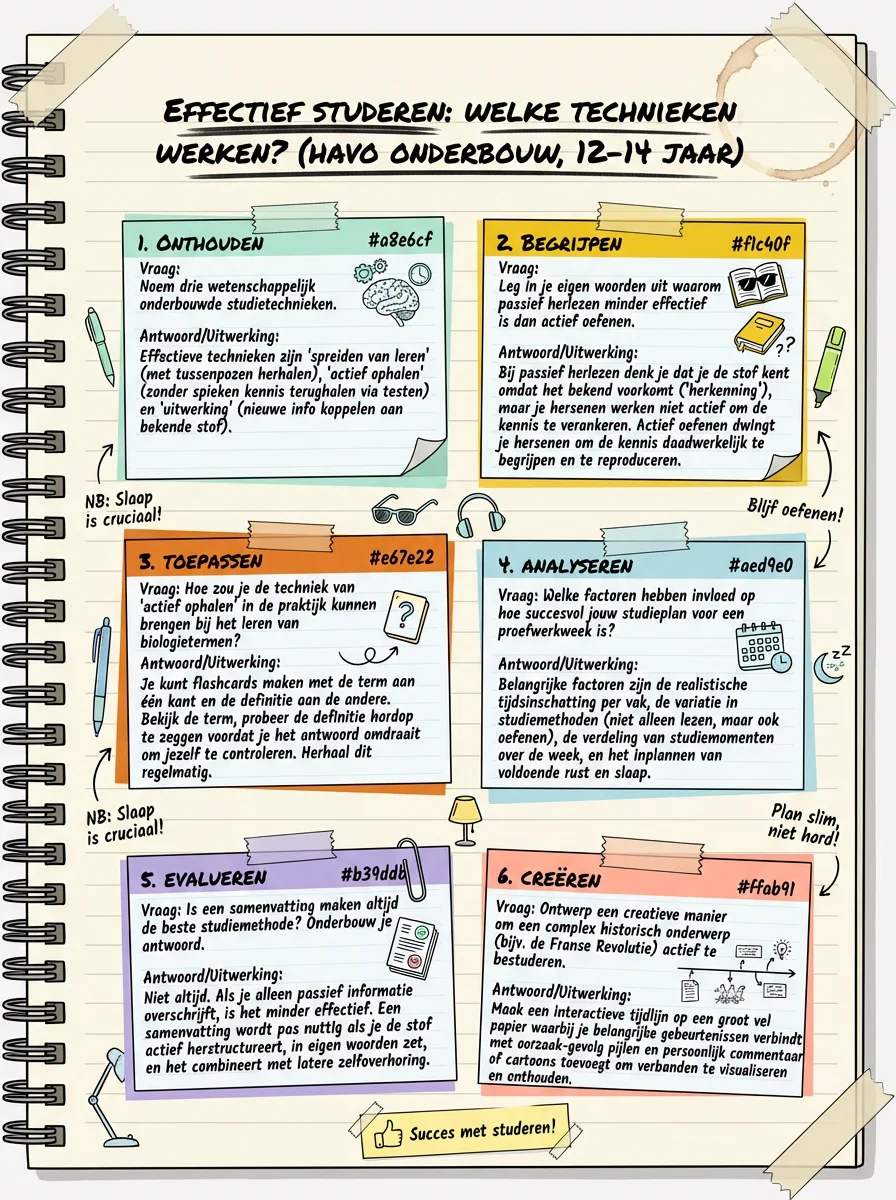 EFFECTIEF STUDEREN: WELKE TECHNIEKEN
WERKEN? (HAVO ONDERBOUW, 12-14 JAAR)
1. ONTHOUDEN
#a8e6cf
Vraag:
Noem drie wetenschappelijk
onderbouwde studietechnieken.
Antwoord/Uitwerking:
Effectieve technieken zijn 'spreiden van leren'
(met tussenpozen herhalen), 'actief ophalen'
(zonder spieken kennis terughalen via testen)
en 'uitwerking' (nieuwe info koppelen aan
bekende stof).
2. BEGRIJPEN
#f1c40f
Vraag:
Leg in je eigen woorden uit waarom
passief herlezen minder effectief
is dan actief oefenen.
??
Antwoord/Uitwerking:
Bij passief herlezen denk je dat je de stof kent
omdat het bekend voorkomt ('herkenning'),
maar je hersenen werken niet actief om de
kennis te verankeren. Actief oefenen dwingt
je hersenen om de kennis daadwerkelijk te
begrijpen en te reproduceren.
NB: Slaap
is cruciaal!
Blijf oefenen!
3. TOEPASSEN
#e67e22
Vraag: Hoe zou je de techniek van
'actief ophalen' in de praktijk kunnen
brengen bij het leren van
biologietermen?
?
Antwoord/Uitwerking:
Je kunt flashcards maken met de term aan
één kant en de definitie aan de andere.
Bekijk de term, probeer de definitie hordop
te zeggen voordat je het antwoord omdraait
om jezelf te controleren. Herhaal dit
regelmatig.
4. ANALYSEREN
#aed9e0
Vraag: Welke factoren hebben invloed op
hoe succesvol jouw studieplan voor een
proefwerkweek is?
Antwoord/Uitwerking:
Belangrijke factoren zijn de realistische
tijdsinschatting per vak, de variatie in
studiemethoden (niet alleen lezen, maar ook
oefenen), de verdeling van studiemomenten
over de week, en het inplannen van
voldoende rust en slaap.
zZZ
NB: Slaap
is cruciaal!
Plan slim,
niet hord!
5. EVALUEREN
#b39ddb
Vraag: Is een samenvatting maken altijd
de beste studiemethode? Onderbouw je
antwoord.
Antwoord/Uitwerking:
Niet altijd. Als je alleen passief informatie
overschrijft, is het minder effectief. Een
samenvatting wordt pas nuttig als je de stof
actief herstructureert, in eigen woorden zet,
en het combineert met latere zelfoverhoring.
6. CREËREN
#ffab91
Vraag: Ontwerp een creatieve manier
om een complex historisch onderwerp
(bijv. de Franse Revolutie) actief te
bestuderen.
Antwoord/Uitwerking:
Maak een interactieve tijdlijn op een groot vel
papier waarbij je belangrijke gebeurtenissen verbindt
met oorzaak-gevolg pijlen en persoonlijk commentaar
of cartoons toevoegt om verbanden te visualiseren
en onthouden.
Succes met studeren!